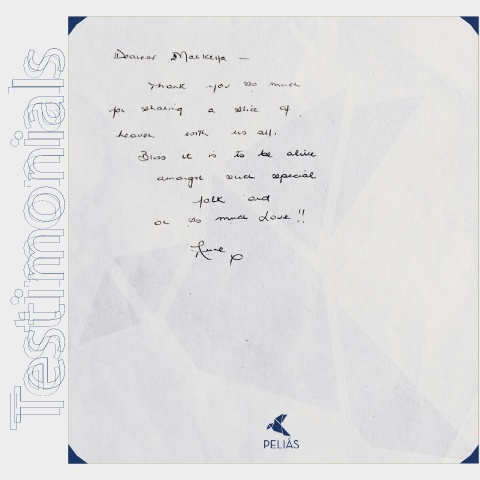 Testimonials
Dearest Markella –
Thank you so much
for sharing a slice of
heaven with us all.
Bliss it is to be alive
amongst such special
folk and
so much Love!!
PELIÁS